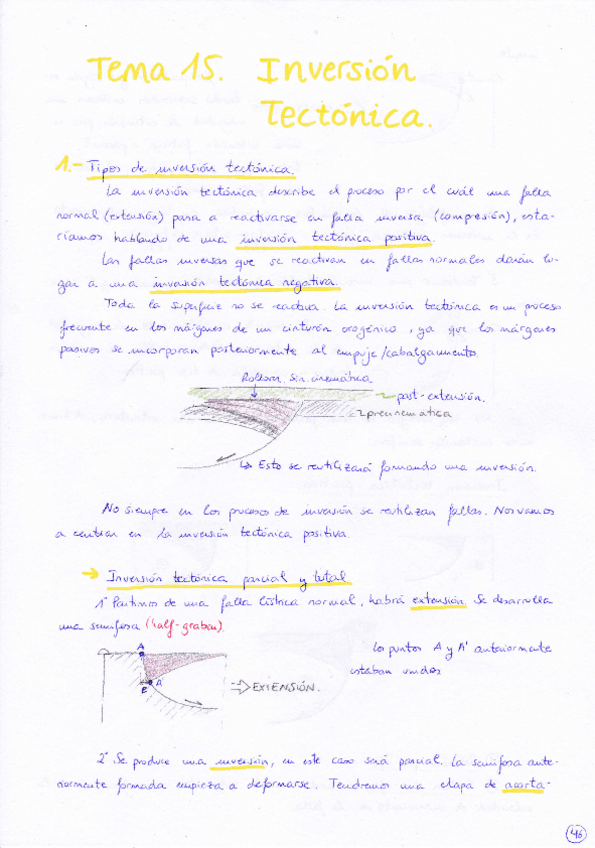 Tema 15. Inversión
Tectónica.
1.- Tipos de inversión tectónica.
La inversión tectónica describe el proceso por el cuál una falla
normal (extensión) pasa a reactivarse en falla inversa (compresión), esta-
ríamos hablando de una inversión tectónica positiva.
Las fallas inversas que se reactivan en fallas normales darán lu-
gar a una inversión tectónica negativa.
Toda la superficie no se reactiva. La inversión tectónica es un proceso
frecuente en los márgenes de un cinturón orogénico, ya que los márgenes
pasivos se incorporan posteriormente al empuje/cabalgamiento.
Rollover Sin-cinemática
post-extensión.
precinemática
↳ Esto se reutilizará formando una inversión.
No siempre en los procesos de inversión se reutilizan fallas. Nos vamos
a centrar en la inversión tectónica positiva.
→ Inversión tectónica parcial y total
1º Partimos de una falla lístrica normal, habrá extensión. Se desarrolla
una semifosa (half-graben).
A
A'
E
⇒ EXTENSIÓN.
Los puntos A y A' anteriormente
estaban unidos
2º Se produce una inversión, en este caso será parcial. La semifosa ante-
riormente formada empieza a deformarse. Tendremos una etapa de acorta-
46